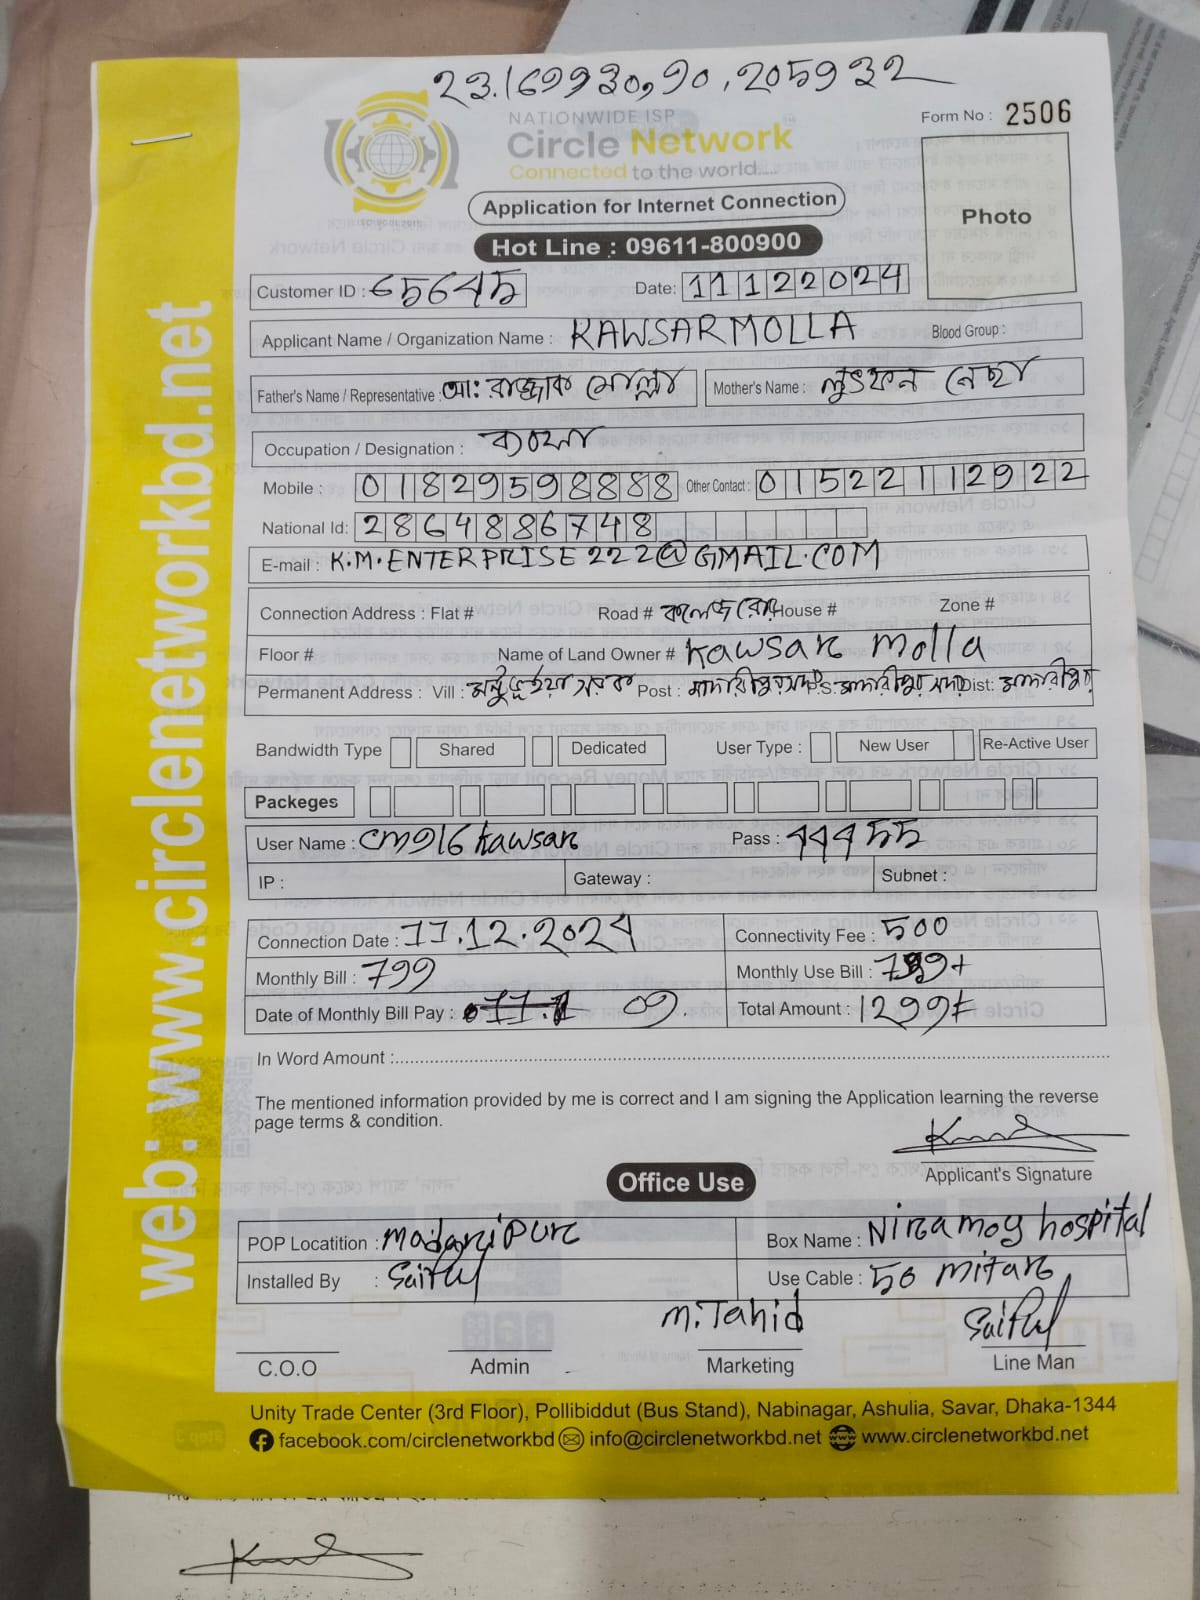 23.169930,90.205932
NATIONWIDE ISP
Circle Network
Connected to the world....
Form No : 2506
Photo
Application for Internet Connection
Hot Line : 09611-800900
Customer ID : 65645
Date: 11122024
Applicant Name / Organization Name : KAWSAR MOLLA Blood Group :
Father's Name / Representative : আ: রাজ্জাক মোল্লা Mother's Name : লুৎফন নেছা
Occupation / Designation :
Mobile : 01829598888 Other Contact : 01522112922
National Id: 2864886748
E-mail : K.M.ENTERPRISE222@GMAIL.COM
Connection Address : Flat # Road # কলেজ রোড House # Zone #
Floor # Name of Land Owner # Kawsar Molla
Permanent Address : Vill : Post : মাদারীপুর সদর P.S: মাদারীপুর সদর Dist: মাদারীপুর
Bandwidth Type Shared Dedicated User Type : New User Re-Active User
Packeges
User Name : CM916kawsar Pass : 11155
IP : Gateway : Subnet :
Connection Date : 11.12.2024 Connectivity Fee : 500
Monthly Bill : 799 Monthly Use Bill : 799+
Date of Monthly Bill Pay : 09. Total Amount : 1299/=
In Word Amount :
The mentioned information provided by me is correct and I am signing the Application learning the reverse
page terms & condition.
Applicant's Signature
Office Use
POP Locatition : Madaripur Box Name : Niramoy hospital
Installed By : Saiful Use Cable : 50 mitar
M.Tahid Saiful
C.O.O Admin Marketing Line Man
Unity Trade Center (3rd Floor), Pollibiddut (Bus Stand), Nabinagar, Ashulia, Savar, Dhaka-1344
facebook.com/circlenetworkbd info@circlenetworkbd.net www.circlenetworkbd.net
web: www.circlenetworkbd.net